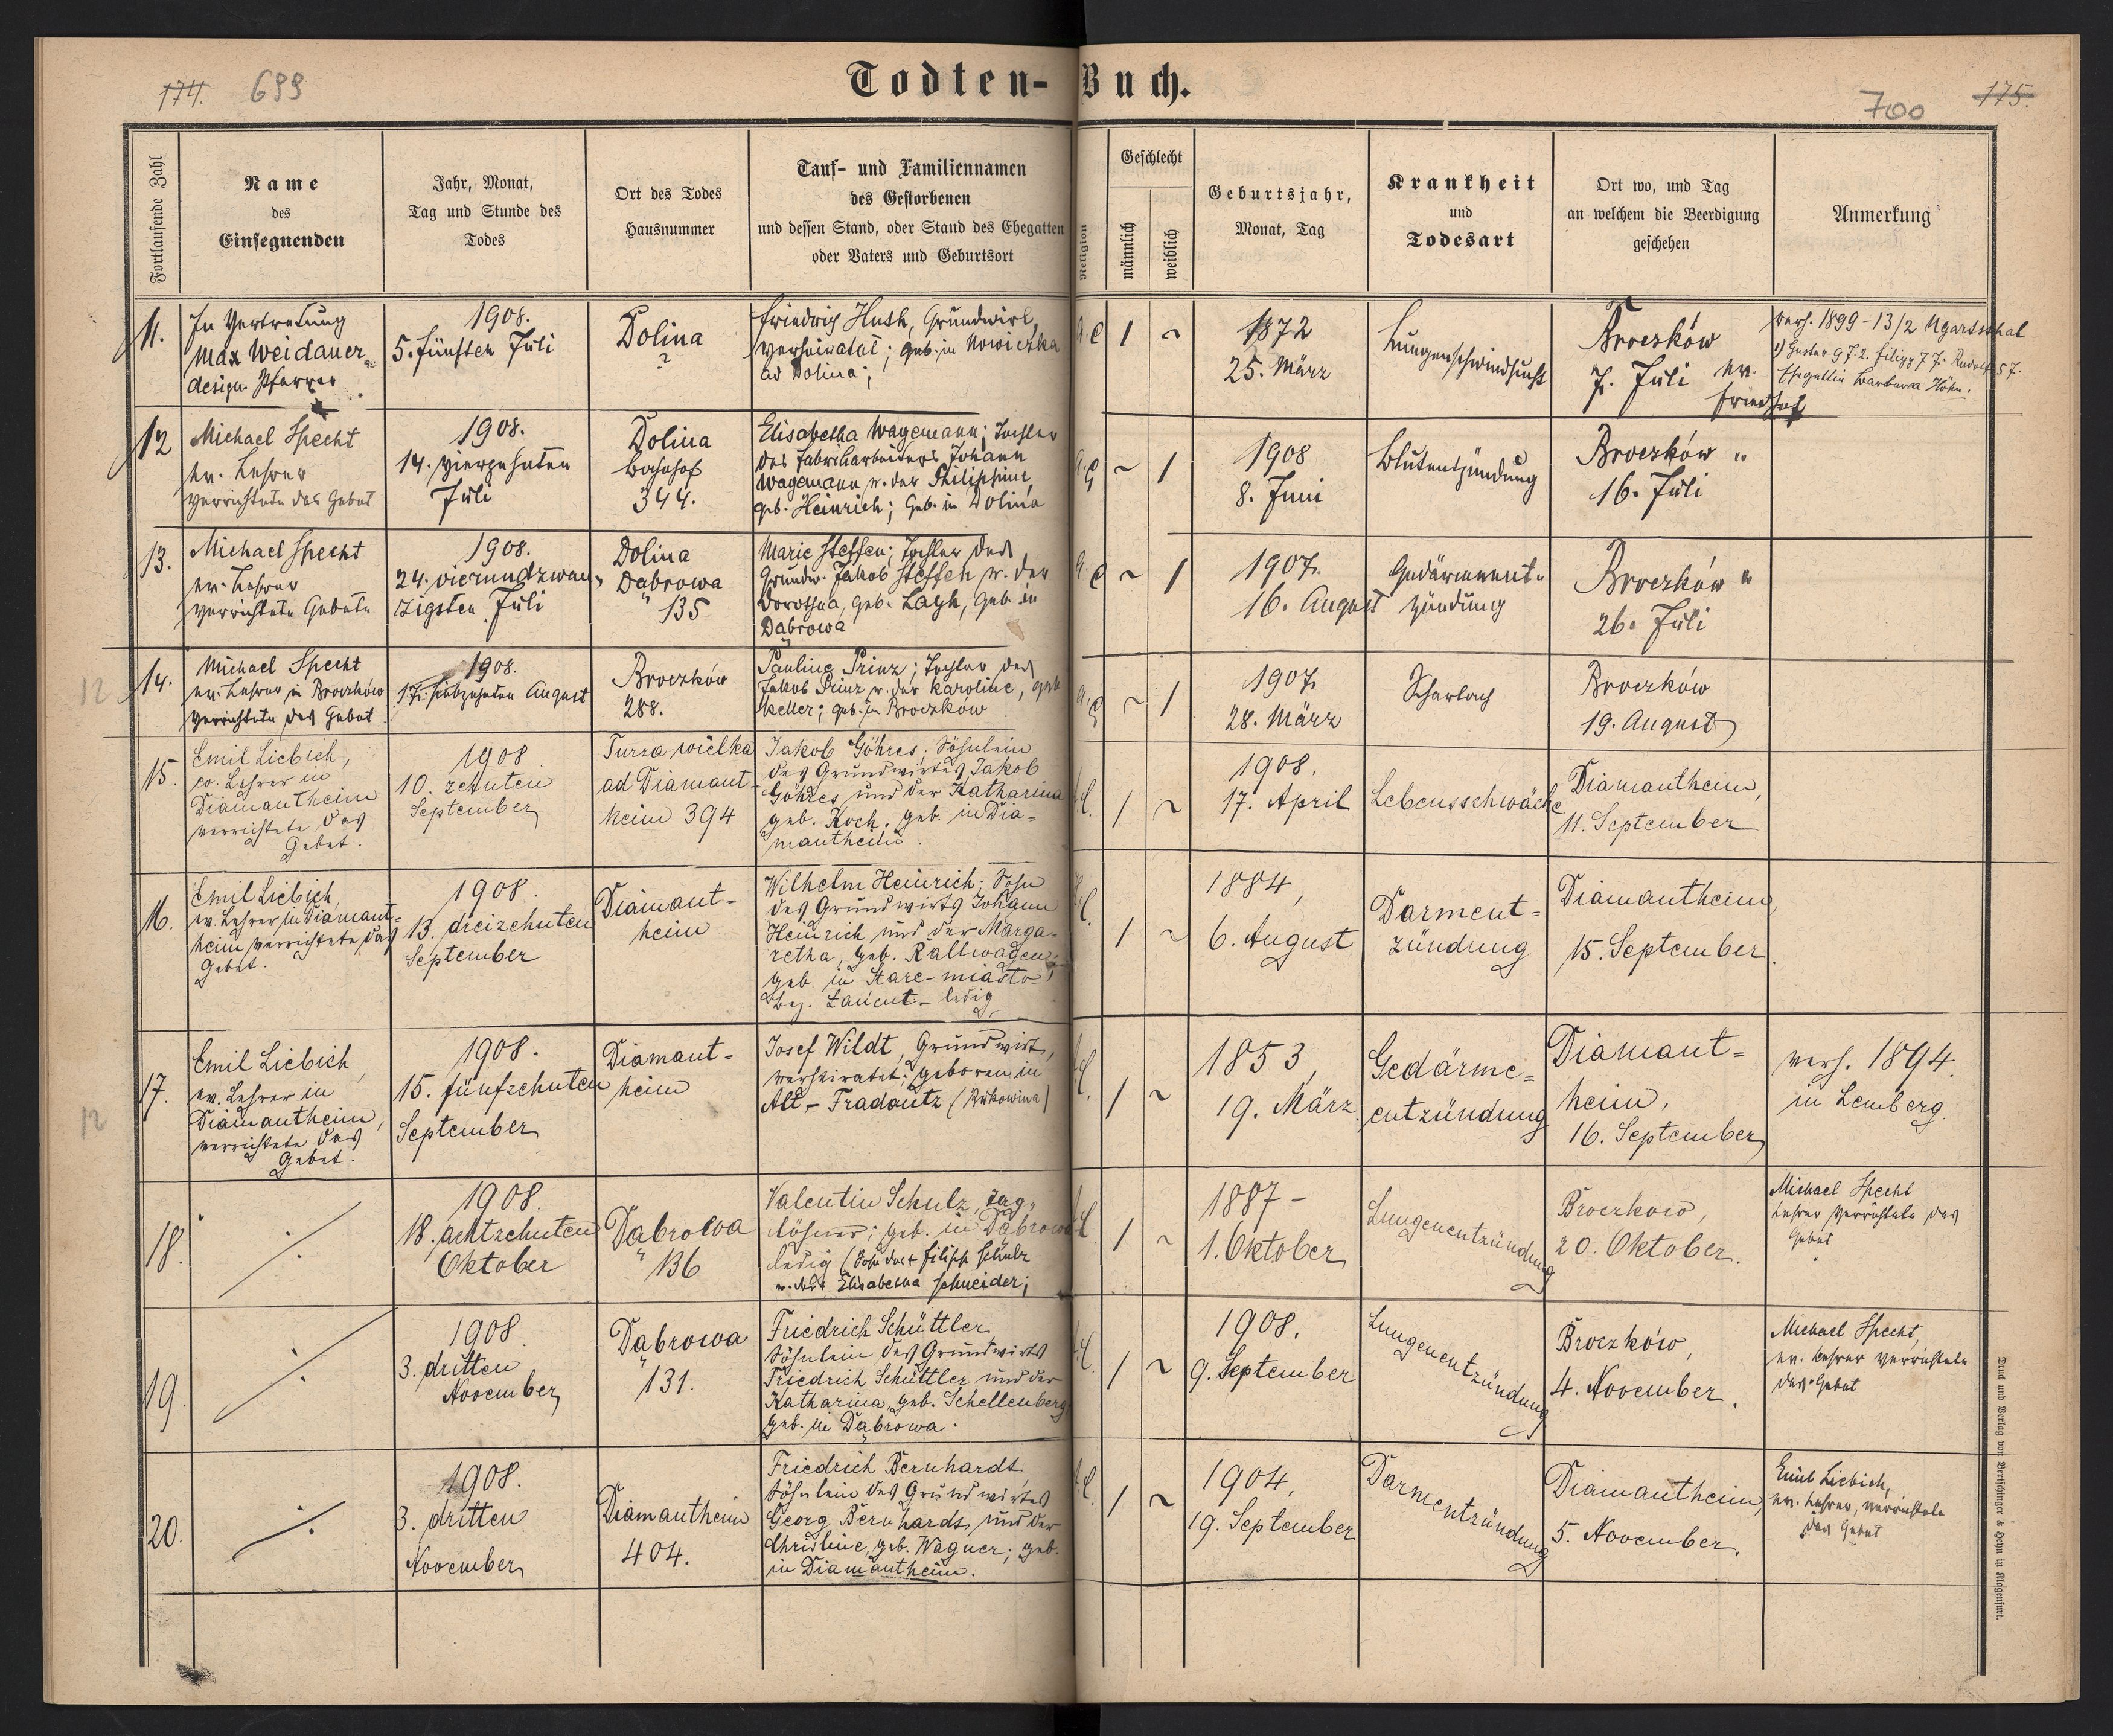 174. 699
Todten-Buch.
700 175.
Fortlaufende Zahl
Name
des
Einsegnenden
Jahr, Monat,
Tag und Stunde des
Todes
Ort des Todes
Hausnummer
Tauf- und Familiennamen
des Gestorbenen
und dessen Stand, oder Stand des Ehegatten
oder Vaters und Geburtsort
Religion
Geschlecht
männlich
weiblich
Geburtsjahr,
Monat, Tag
Krankheit
und
Todesart
Ort wo, und Tag
an welchem die Beerdigung
geschehen
Anmerkung
11.
In Vertretung
Max Weidauer
design. Pfarrer
1908.
5. fünften Juli
Dolina
?
Friedrich Huth, Grundwirt,
verheiratet; geb. in Nowiczka
ad Dolina;
1 ~
1872
25. März
Lungenschwindsucht
Broczków
7. Juli ev.
Friedhof
verh. 1899-13/2 Ugartsthal
1) Gustav 9 J. 2. Filipp 7 J. Rudolf 5 J.
Ehegattin Barbara Höhn.
12
Michael Specht
ev. Lehrer
verrichtete das Gebet
1908.
14. vierzehnten
Juli
Dolina
Bahnhof
344.
Elisabetha Wagemann; Tochter
des Fabriksarbeiters Johann
Wagemann u. der Philippine,
geb. Heinrich; geb. in Dolina
~ 1
1908
8. Juni
Blutentzündung
Broczków "
16. Juli
13.
Michael Specht
ev. Lehrer
verrichtete Gebete
1908.
24. vierundzwan-
zigsten Juli
Dolina
Dąbrowa
135
Marie Steffen; Tochter des
Grundw. Jakob Steffen u. der
Dorothea, geb. Layh, geb. in
Dąbrowa
~ 1
1907.
16. August
Gedärment-
zündung
Broczków "
26. Juli
12
14.
Michael Specht
ev. Lehrer in Broczków
verrichtete das Gebet
1908.
17. siebzehnten August
Broczków
288.
Pauline Prinz; Tochter des
Jakob Prinz u. der Karoline, geb.
Keller; geb. in Broczków
~ 1
1907
28. März
Scharlach
Broczków
19. August
15.
Emil Liebich,
ev. Lehrer in
Diamantheim
verrichtete das
Gebet.
1908
10. zehnten
September
Turza wielka
ad Diamant-
heim 394
Jakob Göhres; Söhnlein
des Grundwirtes Jakob
Göhres und der Katharina
geb. Koch. geb. in Dia-
mantheim.
1 ~
1908.
17. April
Lebensschwäche
Diamantheim,
11. September
16.
Emil Liebich,
ev. Lehrer in Diamant-
heim verrichtete das
Gebet.
1908.
13. dreizehnten
September
Diamant-
heim
Wilhelm Heinrich; Sohn
des Grundwirts Johann
Heinrich und der Marga-
retha, geb. Rallwagen;
geb. in Stare-miasto
Bez. Łańcut - ledig
1 ~
1884,
6. August
Darment-
zündung
Diamantheim,
15. September.
12
17.
Emil Liebich,
ev. Lehrer in
Diamantheim,
verrichtete das
Gebet.
1908.
15. fünfzehnten
September
Diamant-
heim
Josef Wildt, Grundwirt,
verheiratet; geboren in
Alt-Fradautz (Bukowina)
1 ~
1853,
19. März.
Gedärme-
entzündung
Diamant-
heim,
16. September
verh. 1894.
in Lemberg.
18.
1908.
18. achtzehnten
Oktober
Dąbrowa
136
Valentin Schulz, Tag-
löhner; geb. in Dąbrowa
ledig (Sohn des + Filipp Schulz
u. der + Elisabetha Schneider;
1 ~
1887 -
1. Oktober
Lungenentzündung
Broczkow,
20. Oktober.
Michael Specht
Lehrer verrichtete das
Gebet
19.
1908.
3. dritten
November
Dąbrowa
131.
Friedrich Schüttler,
Söhnlein des Grundwirtes
Friedrich Schüttler und der
Katharina, geb. Schellenberg,
geb. in Dąbrowa.
1 ~
1908.
9. September
Lungenentzündung
Broczków,
4. November.
Michael Specht,
ev. Lehrer verrichtete
das Gebet
20.
1908.
3. dritten
November
Diamantheim
404.
Friedrich Bernhardt,
Söhnlein des Grundwirtes
Georg Bernhardt und der
Christine, geb. Wagner; geb.
in Diamantheim.
1 ~
1904,
19. September
Darmentzündung
Diamantheim,
5. November.
Emil Liebich,
ev. Lehrer, verrichtete
das Gebet
Druck und Verlag von Bertschinger & Heyn in Klagenfurt.